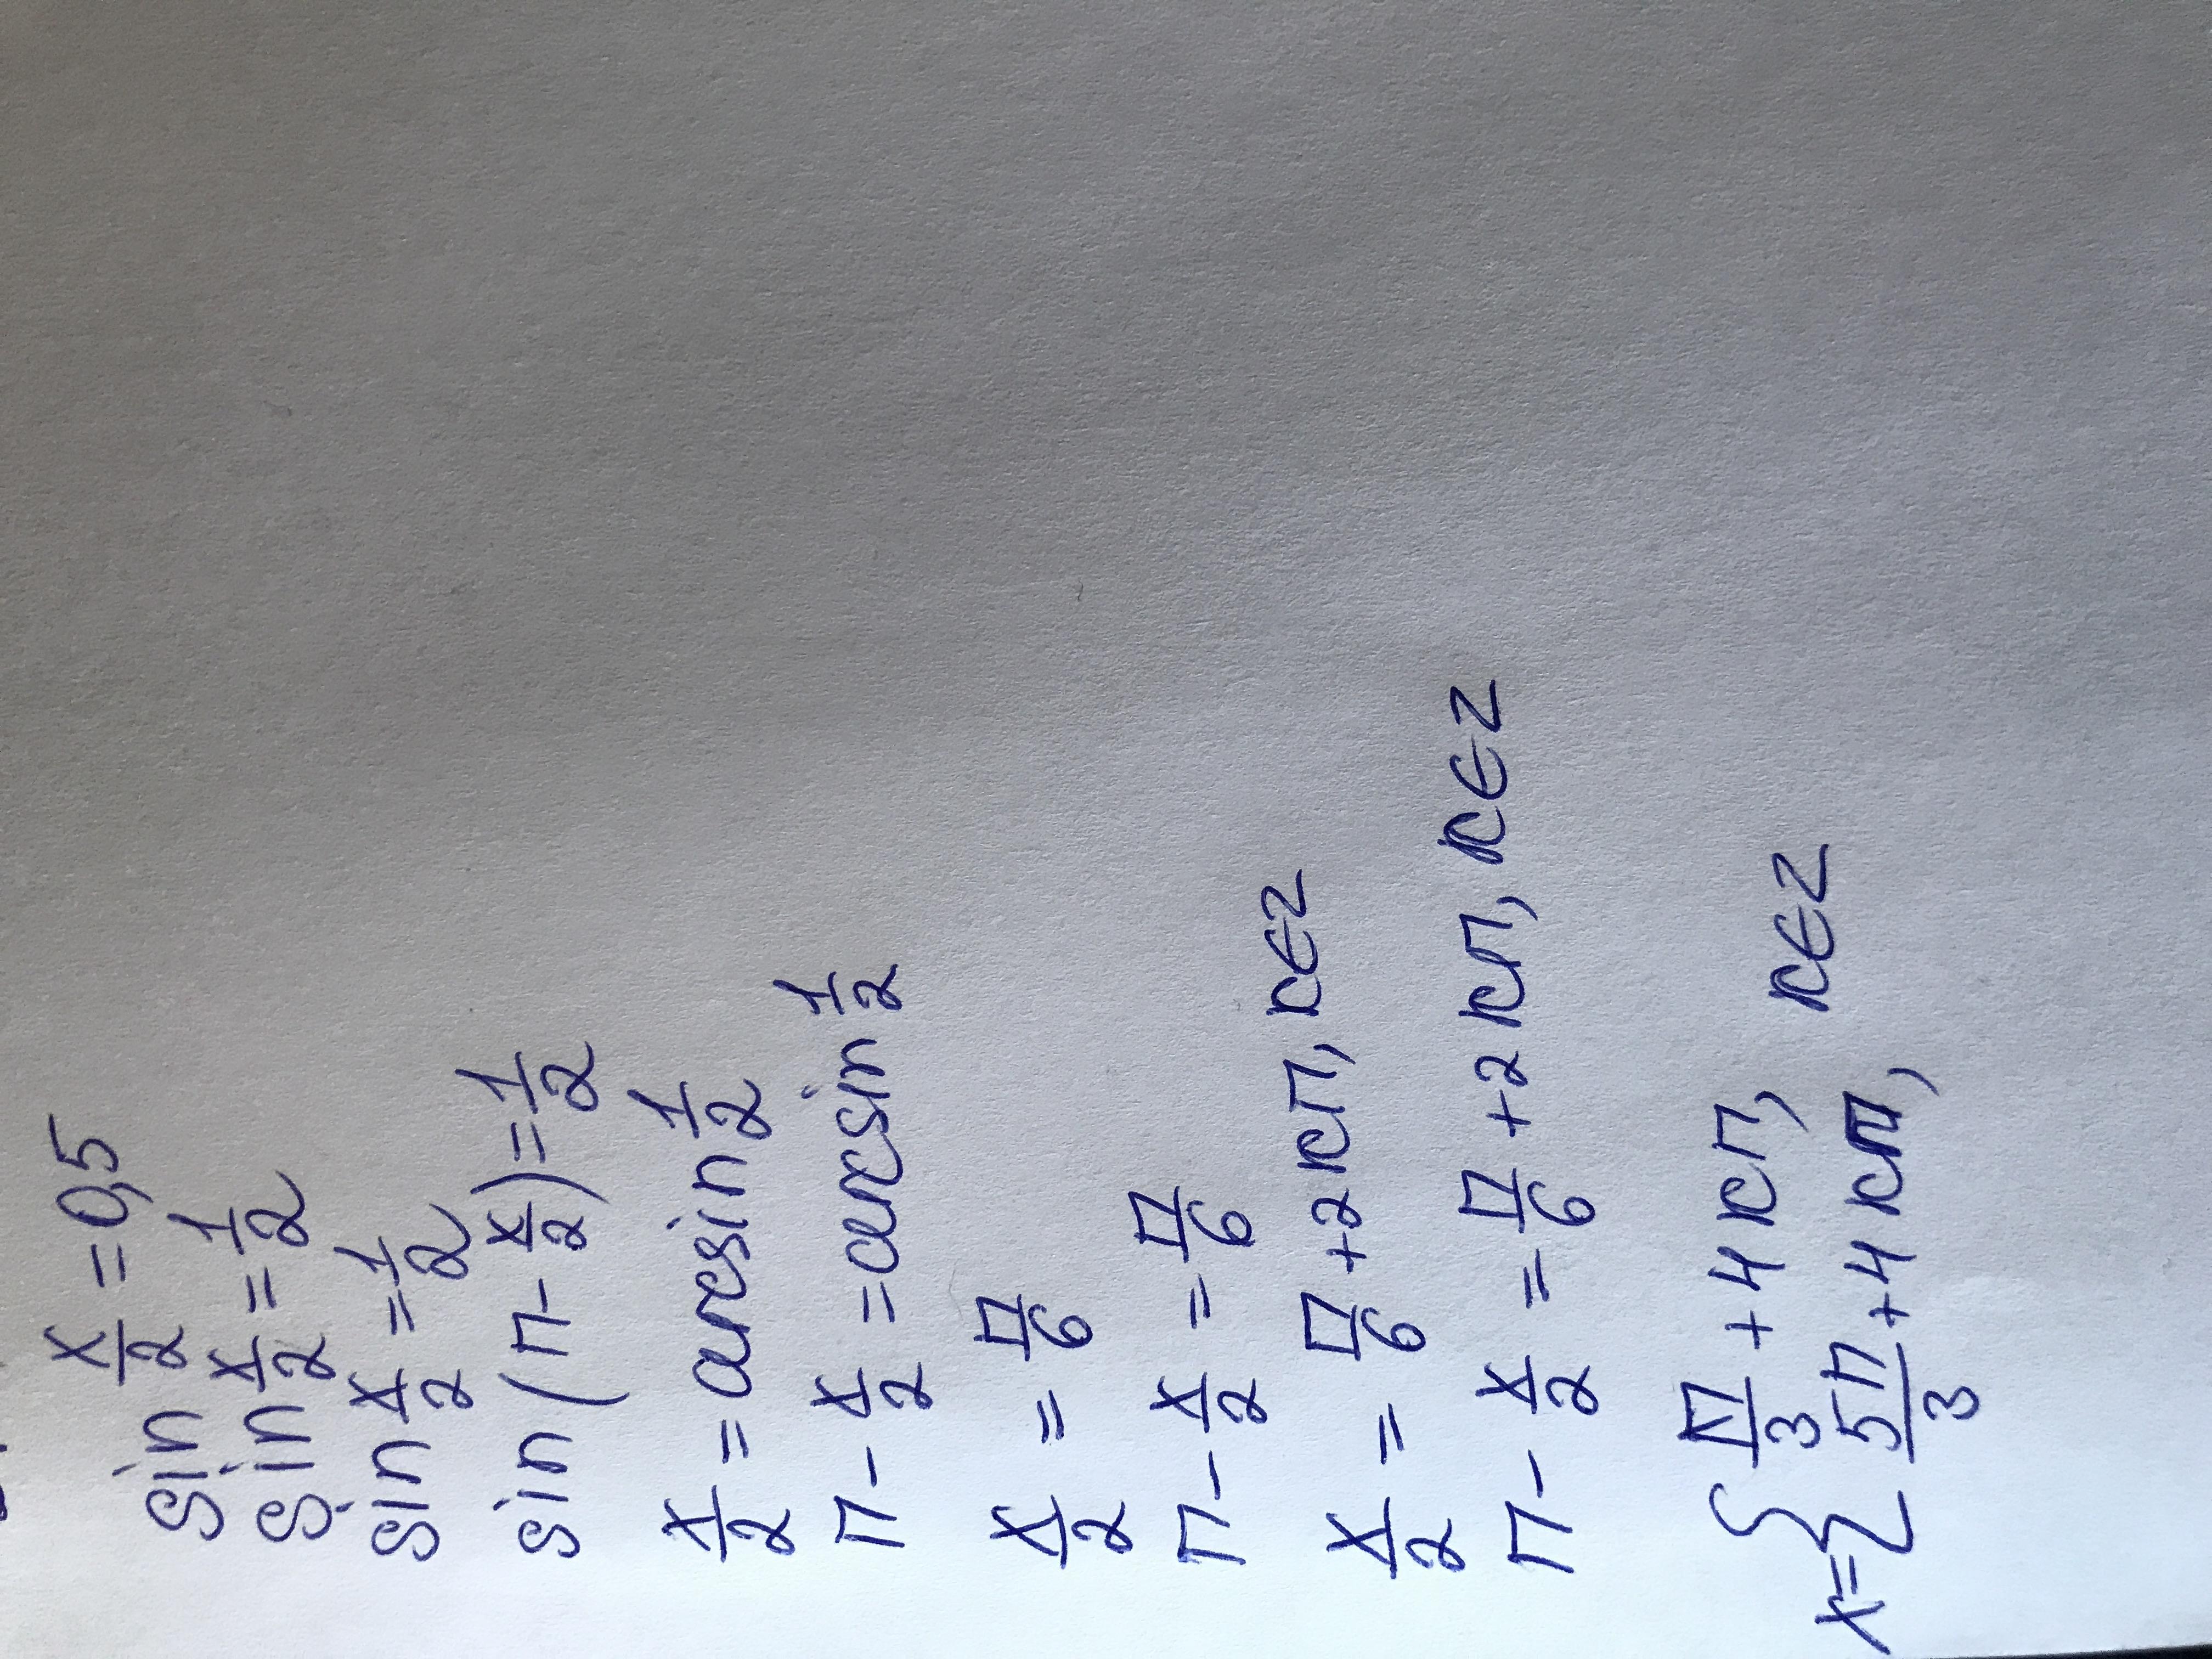 sin x/2 = 0,5
sin x/2 = 1/2
sin x/2 = 1/2
sin (π - x/2) = 1/2
x/2 = arcsin 1/2
π - x/2 = arcsin 1/2
x/2 = π/6
π - x/2 = π/6
x/2 = π/6 + 2кπ, к∈z
π - x/2 = π/6 + 2кπ, к∈z
x = { π/3 + 4кπ, к∈z
5π/3 + 4кπ,